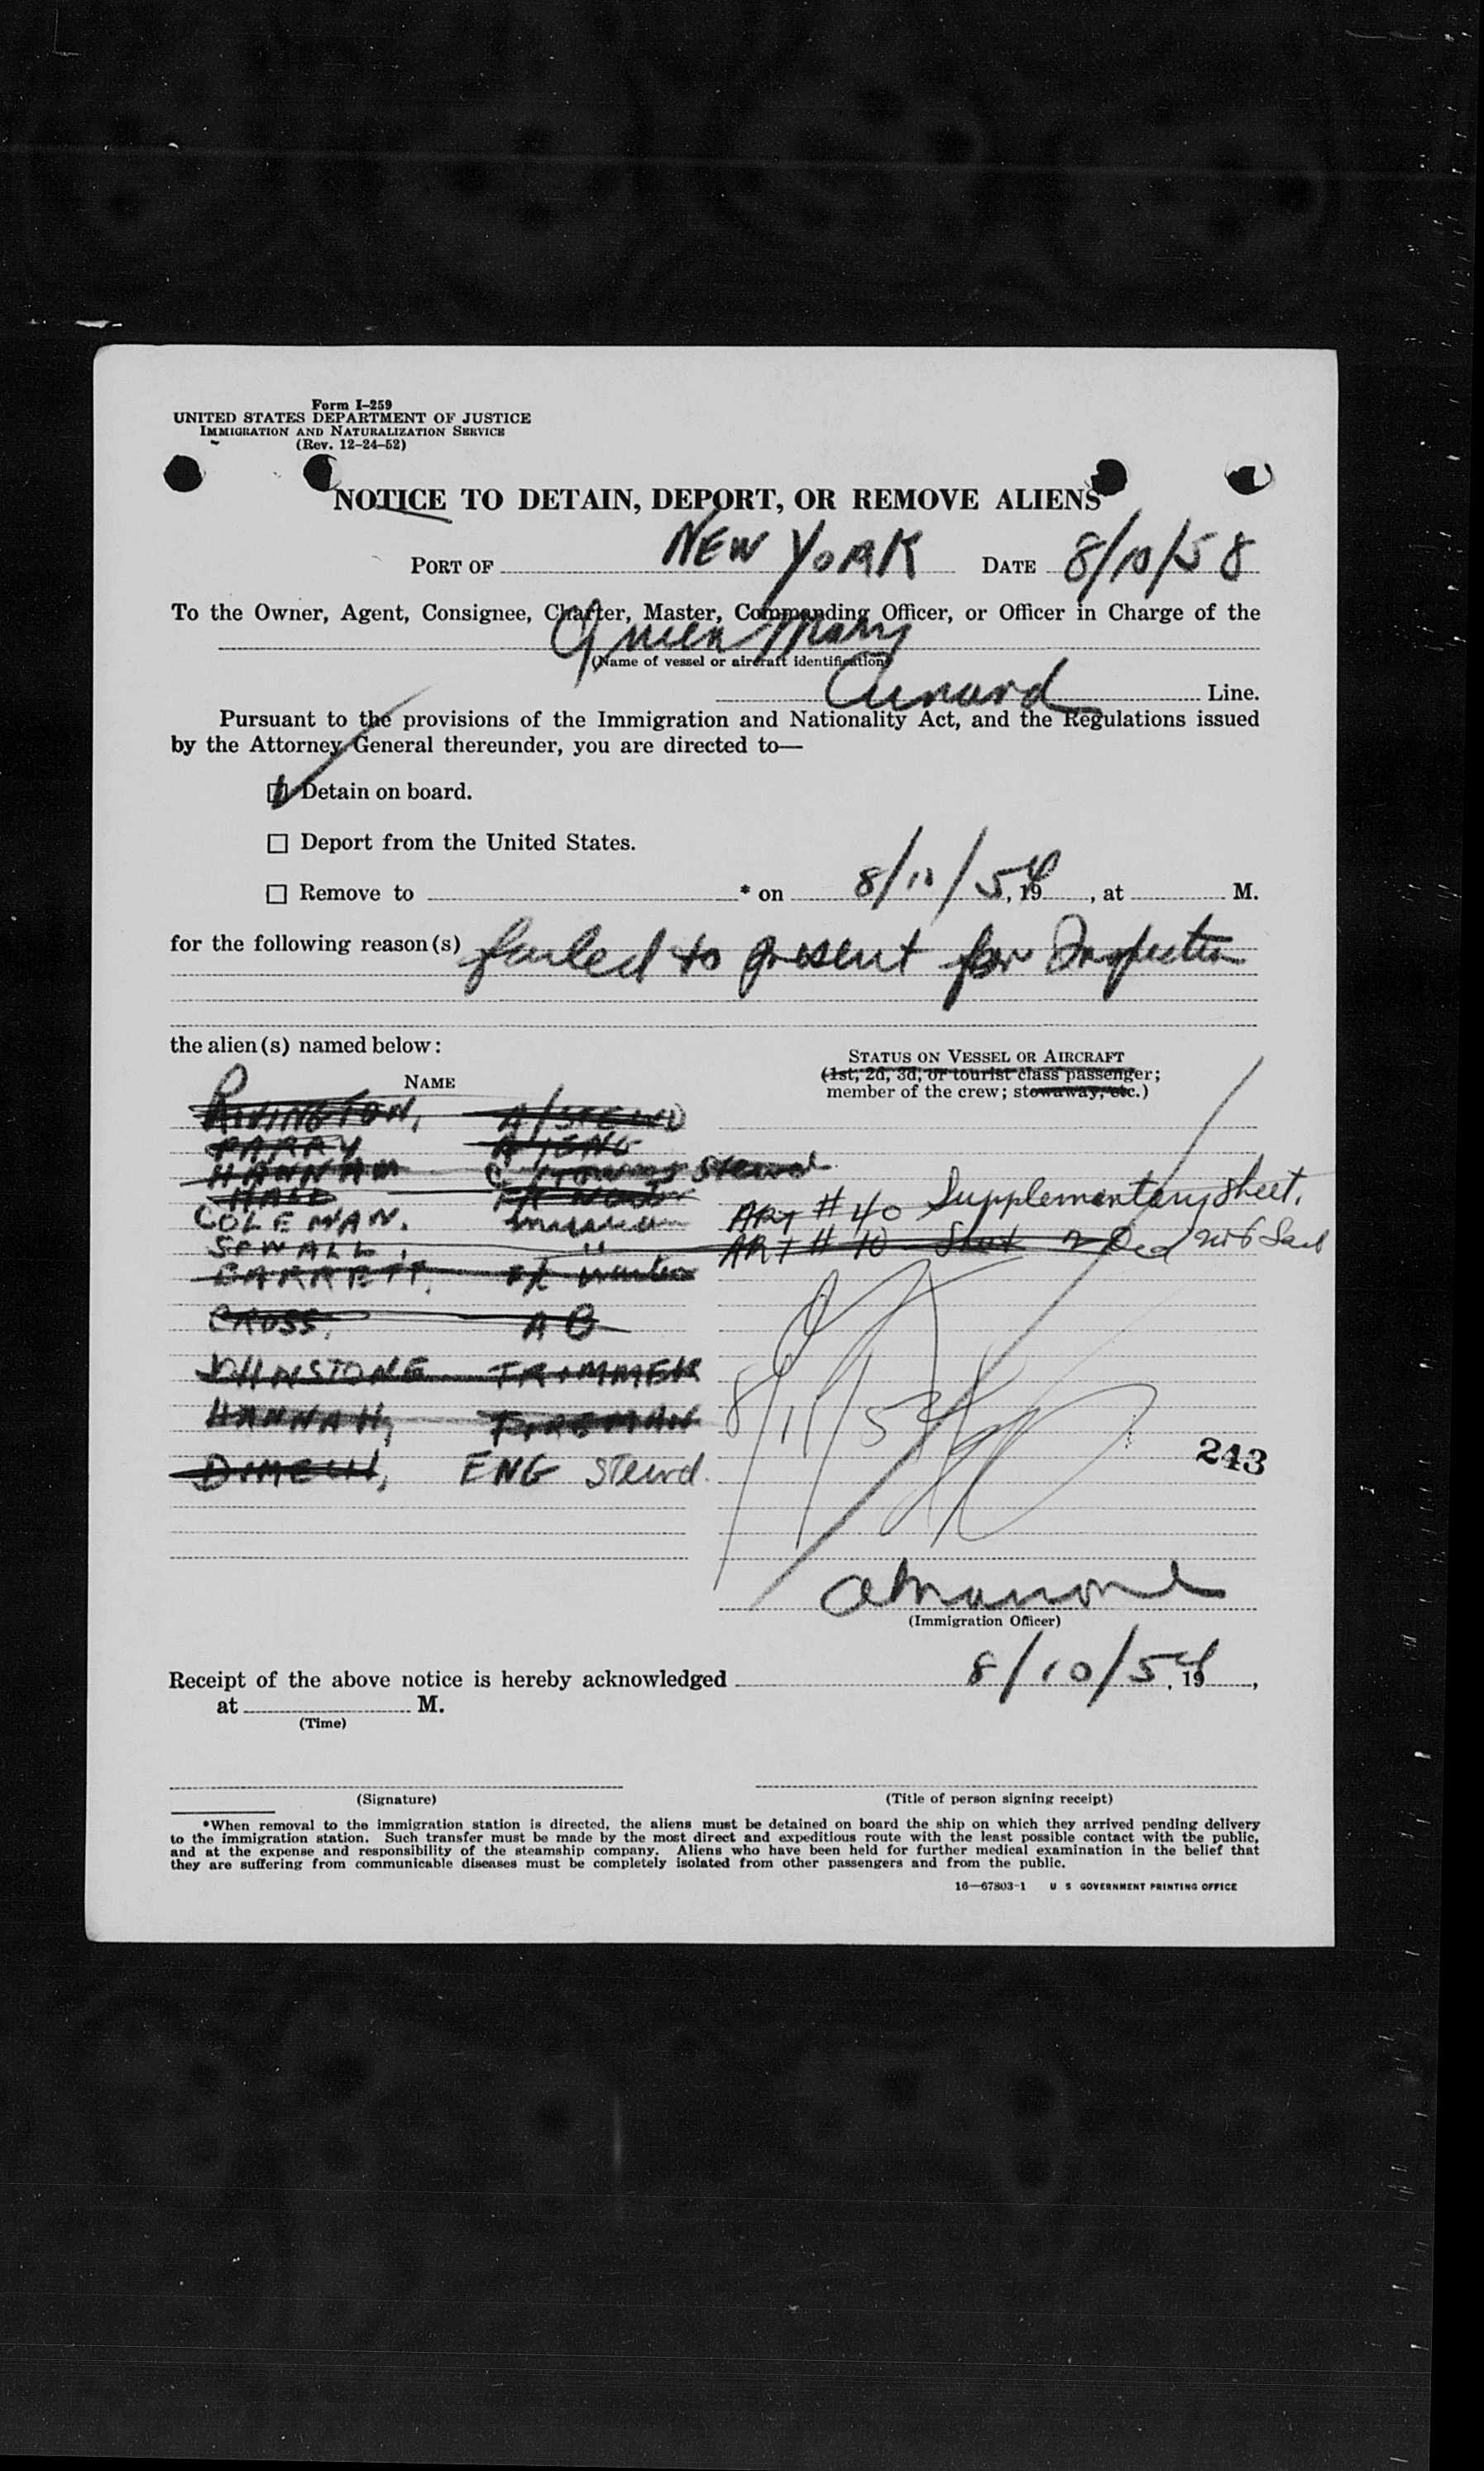 Form I-259
UNITED STATES DEPARTMENT OF JUSTICE
IMMIGRATION AND NATURALIZATION SERVICE
(Rev. 12-24-52)
NOTICE TO DETAIN, DEPORT, OR REMOVE ALIENS
PORT OF NEW YORK DATE 8/10/58
To the Owner, Agent, Consignee, Charter, Master, Commanding Officer, or Officer in Charge of the
Queen Mary
(Name of vessel or aircraft identification)
Cunard Line.
Pursuant to the provisions of the Immigration and Nationality Act, and the Regulations issued
by the Attorney General thereunder, you are directed to—
Detain on board.
Deport from the United States.
Remove to * on 8/10/54, 19, at M.
for the following reason(s) failed to present for Inspection
the alien(s) named below:
STATUS ON VESSEL OR AIRCRAFT
(1st, 2d, 3d, or tourist class passenger;
member of the crew; stowaway, etc.)
NAME
RIVINGTON, A/STEWD
PARRY A/ENG
HANNAM Stewd
HALL
COLEMAN. musician ART #40 Supplementary sheet.
SEWALL, " ART #10 Sheet
GARRETT,
CROSS, AB
JOHNSTONE TRIMMER
HANNAH, FIREMAN
DIMECH, ENG Stewd.
8/11/54
243
(Immigration Officer)
Receipt of the above notice is hereby acknowledged 8/10/54, 19,
at M.
(Time)
(Signature)
(Title of person signing receipt)
*When removal to the immigration station is directed, the aliens must be detained on board the ship on which they arrived pending delivery
to the immigration station. Such transfer must be made by the most direct and expeditious route with the least possible contact with the public,
and at the expense and responsibility of the steamship company. Aliens who have been held for further medical examination in the belief that
they are suffering from communicable diseases must be completely isolated from other passengers and from the public.
16—67803-1 U S GOVERNMENT PRINTING OFFICE